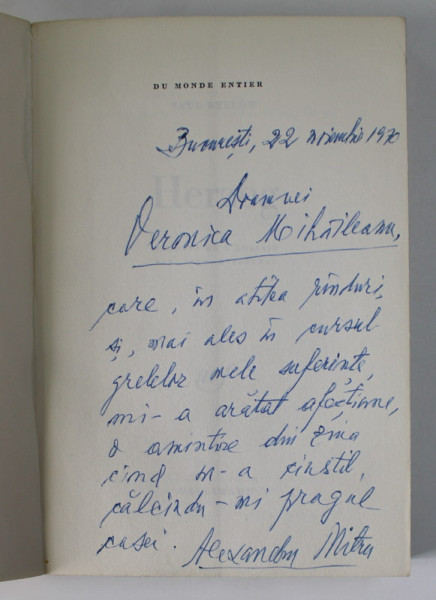 DU MONDE ENTIER
București, 22 noiembrie 1970
Herzog
Doamnei
Veronica Mihăileanu,
care, în atîtea rînduri,
și, mai ales în cursul
grelelor mele suferințe,
mi-a arătat afecțiune,
o amintire din ziua
cînd m-a cinstit,
călcîndu-mi pragul
casei. Alexandru Mitru